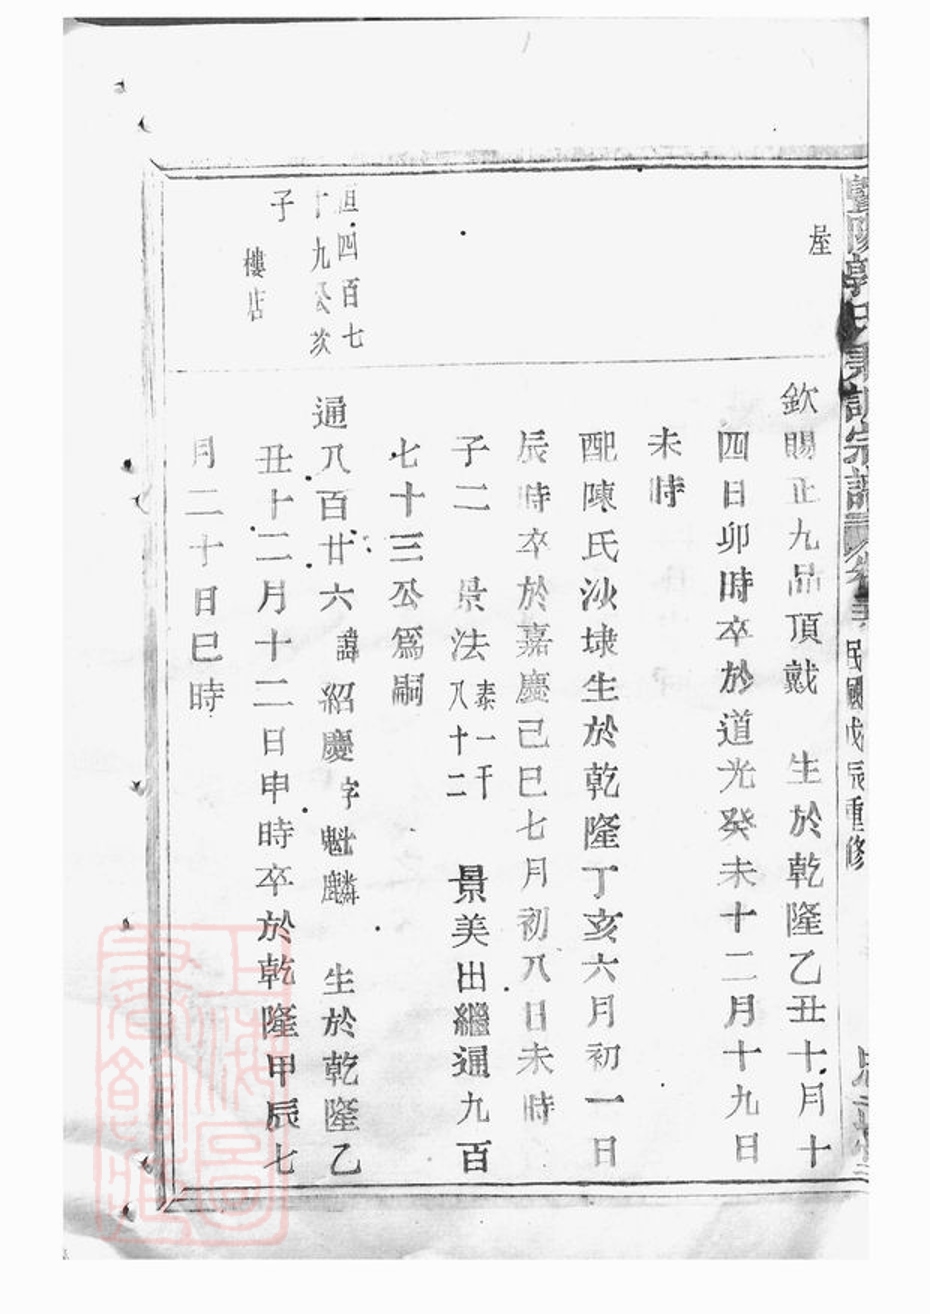 暨陽郭氏宗譜 民國戊辰重修
屋
欽賜正九品頂戴 生於乾隆乙丑十月十
四日卯時卒於道光癸未十二月十九日
未時
配陳氏沙埭生於乾隆丁亥六月初一日
辰時卒於嘉慶己巳七月初八日未時
子二 景法 泰一千八十二 景美出繼通九百
七十三公爲嗣
恒四百七
十九公次
子
樓店
通八百廿六諱紹慶字魁麟 生於乾隆乙
丑十二月十二日申時卒於乾隆甲辰七
月二十日巳時
上海圖書館藏